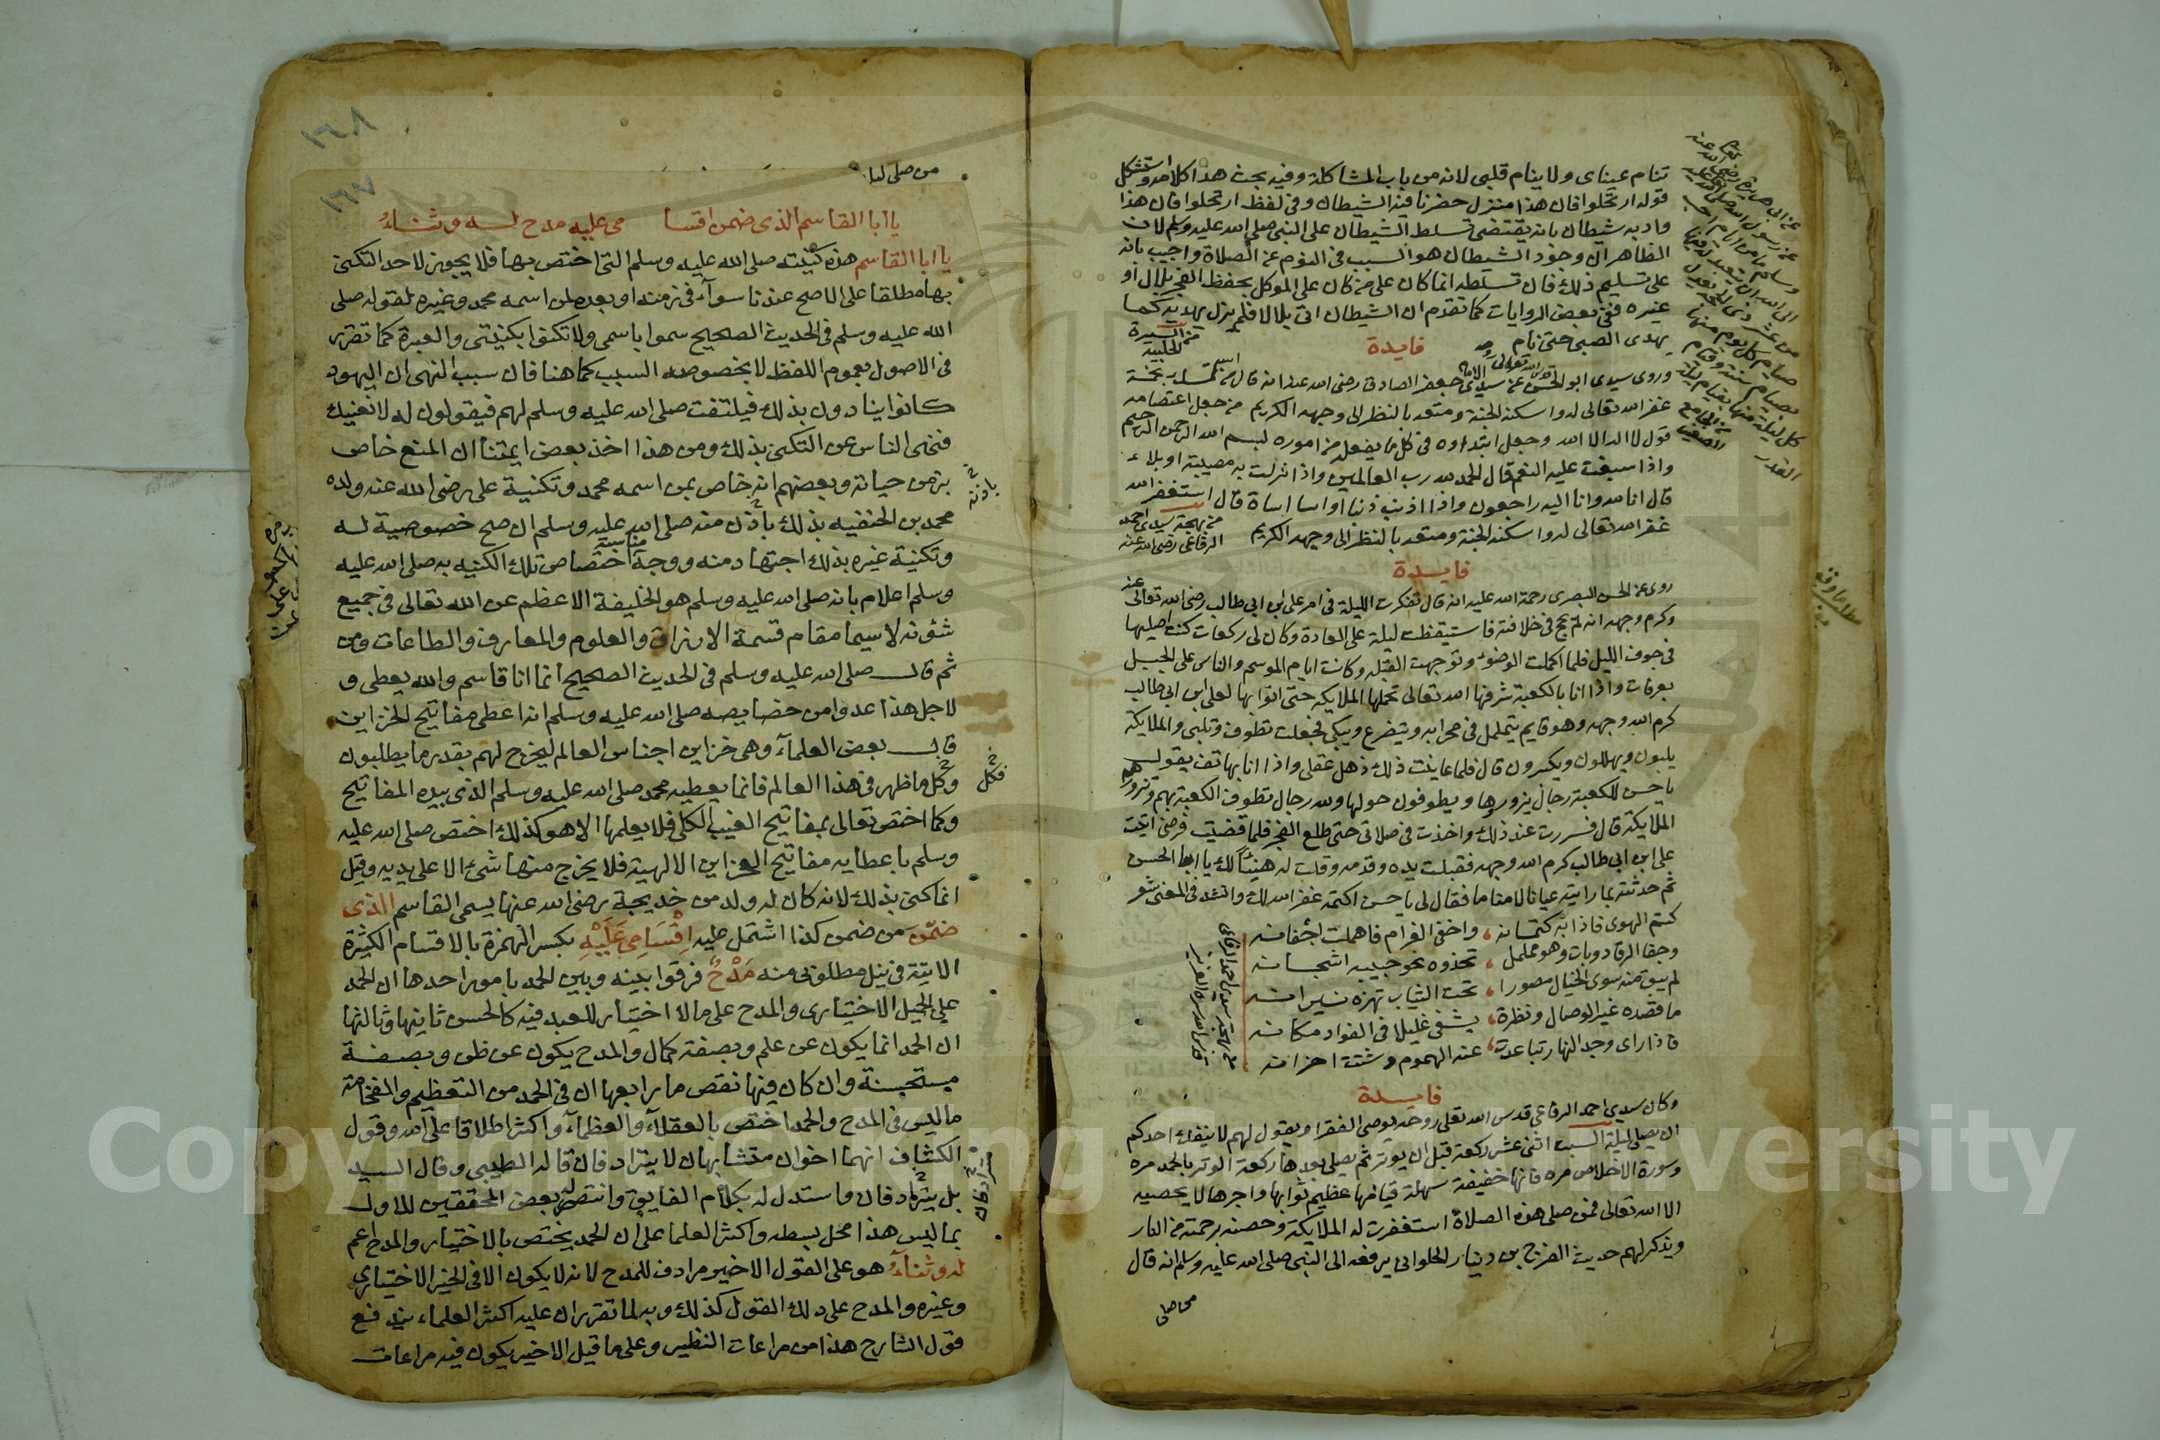 تنام عيناي ولا ينام قلبي لانه من باب المشاكلة وفيه بحث هذا كلامه واستشكل
قوله ارتحلوا فان هذا منزل حضرنا فيه الشيطان وفي لفظ ارتحلوا فان هذا
واد به شيطان بانه يقتضي تسلط الشيطان على النبي صلى الله عليه وسلم لان
الظاهر ان وجود الشيطان هو السبب في النوم عن الصلاة واجيب بانه
على تسليم ذلك فان تسلطه انما كان على من كان على الموكل بحفظ الفجر بلال او
غيره ففي بعض الروايات كما تقدم ان الشيطان اتى بلالا فلم يزل يهديه كما
يهدى الصبي حتى نام
من السيرة
للحلبية
فايدة
وروى سيدي ابو الحسن عن سيدي الامام جعفر الصادق رضي الله عنه انه قال من تمسك بخمسة
غفر الله تعالى له واسكنه الجنة ومتعه بالنظر الى وجهه الكريم من جعل اعتصامه
قول لا اله الا الله وجعل ابتداوه في كل ما يفعل من اموره لبسم الله الرحمن الرحيم
واذا سبغت عليه النعم قال الحمد لله رب العالمين واذا نزلت به مصيبة او بلاء
قال انا لله وانا اليه راجعون واذا اذنب ذنبا او اسا اساة قال استغفر الله
غفر الله تعالى له واسكنه الجنة ومتعه بالنظر الى وجهه الكريم
من بهجة سيدي احمد
الرفاعي رضي الله عنه
فايدة
روى عن الحسن البصري رحمة الله عليه انه قال تفكرت الليلة في امر علي ابن ابي طالب رضي الله تعالى عنه
وكرم وجهه انه لم يحج في خلافته فاستيقظت ليلة على العادة وكان لي ركعات كنت اصليها
في جوف الليل فلما اكملت الوضوء وتوجهت القبلة وكانت ايام الموسم والناس على الجبل
بعرفات واذا انا بالكعبة شرفها الله تعالى تحملها الملايكة حتى اتوا بها لعلي ابن ابي طالب
كرم الله وجهه وهو قايم يتململ في محرابه ويتضرع ويبكي فجعلت تطوف وتلبي والملايكة
يلبون ويهللون ويكبرون قال فلما عاينت ذلك ذهل عقلي واذا انا بهاتف يقول
يا حسن للكعبة رجال يزورها ويطوفون حولها ولله رجال تطوف الكعبة بهم وتزورهم
الملايكة قال فسررت عند ذلك واخذت في صلاتي حتى طلع الفجر فلما قضيت فرضي اتيت
علي ابن ابي طالب كرم الله وجهه فقبلت يده وقدمه وقلت له هنيئا لك يا ابا الحسن
ثم حدثته بما رايته عيانا لا مناما فقال لي يا حسن اكتمه غفر الله لك وانشد في المعنى شعر
كتم الهوى فاذا به كتمانه ، واخفى الغرام فاهملت اجفانه
وجفا الرقاد وبات وهو مململ ، تحذوه نحو حبيبه اشجانه
لم يبق منه سوى الخيال مصورا ، تحت الثياب تهزه نيرانه
ما قصده غير الوصال ونظرة ، يشفي غليلا في الفواد مكانه
فاذا راى وجد النهار تباعدت ، عنه الهموم وشتت احزانه
فايدة
وكان سيدي احمد الرفاعي قدس الله تعالى روحه يوصي الفقرا ويقول لهم لا ينفك احدكم
ان يصلي ليلة السبت اثنى عشر ركعة قبل ان يوتر ثم يصلي بعدها ركعة الوتر بالحمد مره
وسورة الاخلاص مره فانها خفيفة سهلة قيامها عظيم ثوابها واجرها لا يحصيه
الا الله تعالى فمن صلى هذه الصلاة استغفرت له الملايكة وحصنه برحمته من النار
ويذكر لهم حديث الفرج بن دينار الحلواني يرفعه الى النبي صلى الله عليه وسلم انه قال
١٦٨
١٦٧
من صلى ليلة
يا ابا القاسم الذي ضمن اقسا مي عليه مدح له وثناء
يا ابا القاسم هذه كنيته صلى الله عليه وسلم التي اختص بها فلا يجوز لاحد التكني
بها مطلقا على الاصح عندنا سواء في زمنه او بعده لمن اسمه محمد وغيره لقوله صلى
الله عليه وسلم في الحديث الصحيح سموا باسمي ولا تكنوا بكنيتي والعبرة كما تقرر
في الاصول بعموم اللفظ لا بخصوص السبب كما هنا فان سبب النهي ان اليهود
كانوا ينادون بذلك فيلتفت صلى الله عليه وسلم لهم فيقولون له لا نعنيك
فنهى الناس عن التكني بذلك ومن هذا اخذ بعض ايمتنا ان المنع خاص
بزمن حياته وبعضهم انه خاص بمن اسمه محمد وتكنية علي رضي الله عنه ولده
محمد بن الحنفيه بذلك باذن منه صلى الله عليه وسلم ان صح خصوصية له
وتكنية غيره بذلك اجتهاد منه ووجه مناسبة اختصاص تلك الكنيه به صلى الله عليه
وسلم اعلام بانه صلى الله عليه وسلم هو الخليفة الاعظم عن الله تعالى في جميع
شؤنه لاسيما مقام قسمة الارزاق والعلوم والمعارف والطاعات ومن
ثم قال صلى الله عليه وسلم في الحديث الصحيح انما انا قاسم والله يعطي و
لاجل هذا عدوا من خصايصه صلى الله عليه وسلم انه اعطي مفاتيح الخزاين
قال بعض العلماء وهي خزاين اجناس العالم ليخرج لهم بقدر ما يطلبون
وكل ما ظهر في هذا العالم فانما يعطيه محمد صلى الله عليه وسلم الذي بيده المفاتيح
وكما اختص تعالى بمفاتيح الغيب الكلي فلا يعلمها الا هو كذلك اختص صلى الله عليه
وسلم باعطايه مفاتيح الخزاين الالهية فلا يخرج منها شيء الا على يديه وقيل
انما كني بذلك لانه كان له ولد من خديجة رضي الله عنها يسمى القاسم الذي
ضمن من ضمن كذا اشتمل عليه اقسامي عليه بكسر الهمزة بالاقسام الكثيرة
الاتية في نيل مطلوبي منه مدح فرقوا بينه وبين الحمد بامور احدها ان الحمد
على الجميل الاختياري والمدح على ما لا اختيار للعبد فيه كالحسن ثانيها وثالثها
ان الحمد انما يكون عن علم وبصفة كمال والمدح يكون عن ظن وبصفة
مستحسنة وان كان فيها نقص ما رابعها ان في الحمد من التعظيم والفخامة
ما ليس في المدح والحمد اختص بالعقلاء والعظماء واكثر اطلاقا على الله وقول
الكشاف انهما اخوان متشابهان لا يترادفان قاله الطيبي وقال السيد
بل يترادفان واستدل له بكلام الفايق وانتصر له بعض المحققين للاول
بما ليس هذا محل بسطه واكثر العلما على ان الحمد يختص بالاختيار والمدح اعم
له وثناء هو على القول الاخير مرادف للمدح لانه لا يكون الا في الخير الاختياري
وغيره والمدح على ذلك القول كذلك وبه لما تقرر ان عليه اكثر العلماء يندفع
قول الشارح هذا من مراعات النظير وعلى ما قيل الاخير يكون فيه مراعات
باذنه
فكل
Copyright © King Saud University